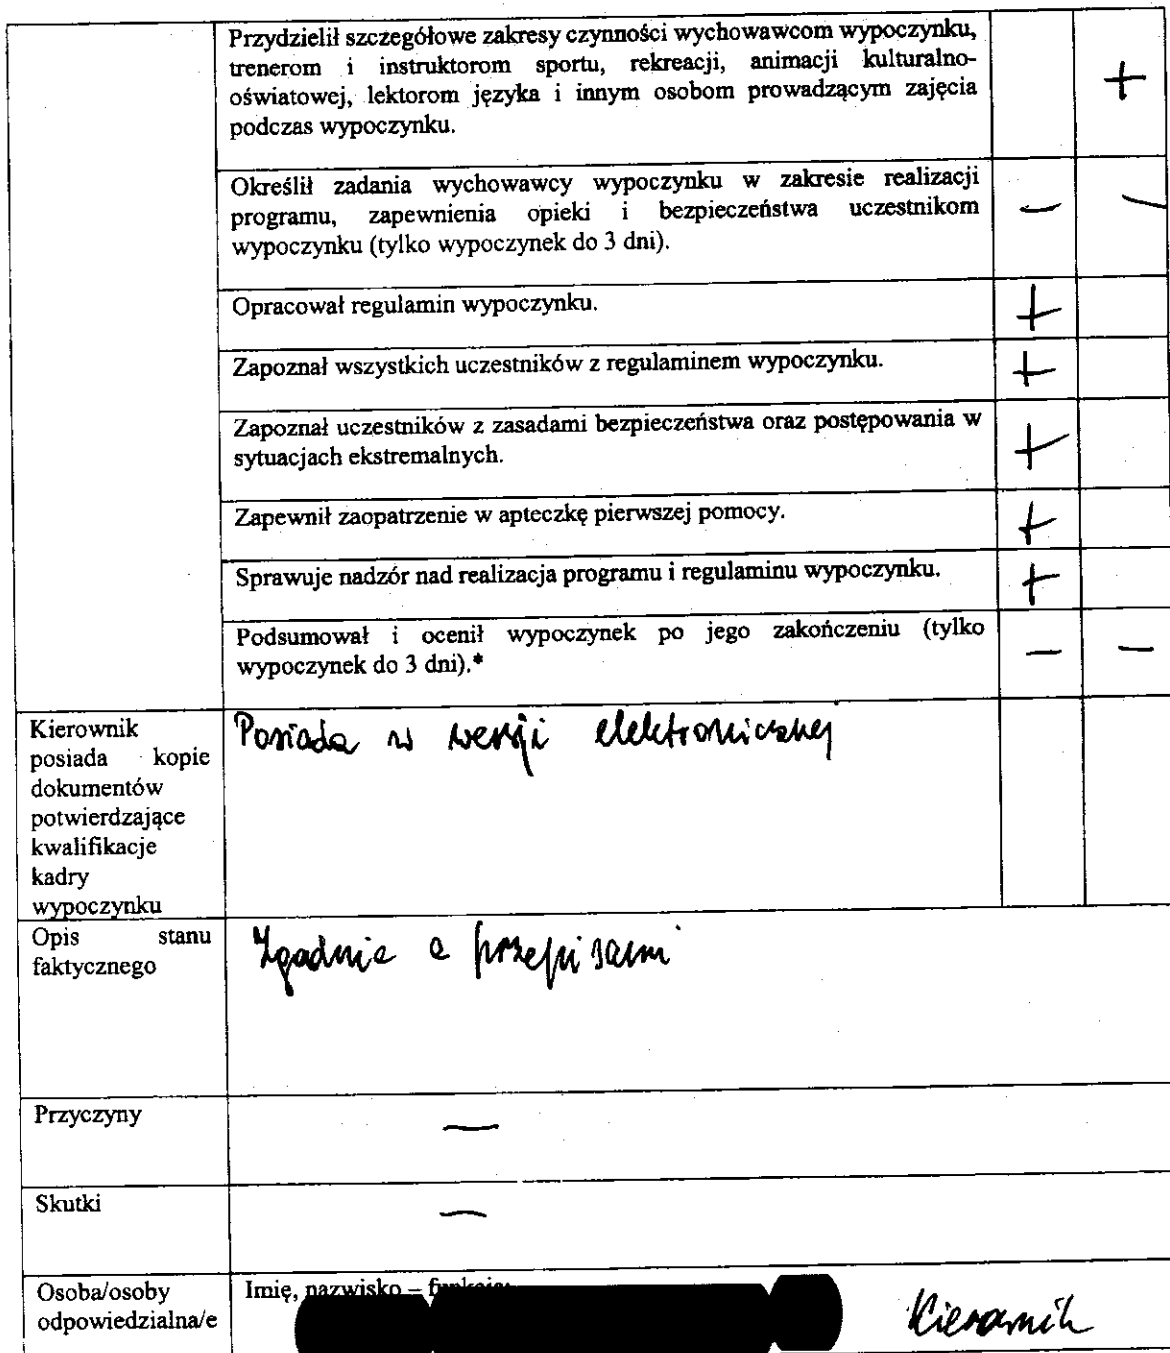 Przydzielił szczegółowe zakresy czynności wychowawcom wypoczynku,
trenerom i instruktorom sportu, rekreacji, animacji kulturalno-
oświatowej, lektorom języka i innym osobom prowadzącym zajęcia
podczas wypoczynku. +
Określił zadania wychowawcy wypoczynku w zakresie realizacji
programu, zapewnienia opieki i bezpieczeństwa uczestnikom — —
wypoczynku (tylko wypoczynek do 3 dni).
Opracował regulamin wypoczynku. +
Zapoznał wszystkich uczestników z regulaminem wypoczynku. +
Zapoznał uczestników z zasadami bezpieczeństwa oraz postępowania w
sytuacjach ekstremalnych. +
Zapewnił zaopatrzenie w apteczkę pierwszej pomocy. +
Sprawuje nadzór nad realizacja programu i regulaminu wypoczynku. +
Podsumował i ocenił wypoczynek po jego zakończeniu (tylko
wypoczynek do 3 dni).* — —
Kierownik
posiada kopie
dokumentów
potwierdzające
kwalifikacje
kadry
wypoczynku
Posiada w wersji elektronicznej
Opis stanu
faktycznego
Zgodnie z przepisami
Przyczyny —
Skutki —
Osoba/osoby
odpowiedzialna/e
Imię, nazwisko – funkcja:
Kierownik